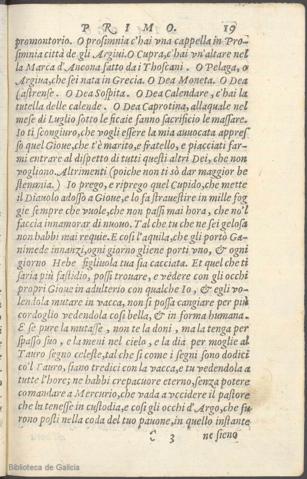 PRIMO. 19
promontorio. O prosimnia c'hai vna cappella in Pro-
simnia città de gli Argiui. O Cupra, c'hai vn'altare nel
la Marca d'Ancona fatto da i Thoscani. O Pelaga, o
Argiua, che sei nata in Grecia. O Dea Moneta. O Dea
Castrense. O Dea Sospita. O Dea Calendare, c'hai la
tutella delle calende. O Dea Caprotina, allaquale nel
mese di Luglio sotto le ficaie fanno sacrificio le massare.
Io ti scongiuro, che vogli essere la mia auuocata appres
so quel Gioue, che t'è marito, e fratello, e piacciati far-
mi entrare al dispetto di tutti questi altri Dei, che non
vogliono. Altrimenti (poiche non ti sò dar maggior be
stemmia.) Io prego, e riprego quel Cupido, che mette
il Diauolo adosso a Gioue, e lo fa strauestire in mille fog
gie sempre che vuole, che non passi mai hora, che no'l
faccia innamorar di nuouo. Tal che tu che ne sei gelosa
non habbi mai requie. E così l'aquila, che gli portò Ga-
nimede innanzi, ogni giorno gliene porti vno, & ogni
giorno Hebe figliuola tua sia cacciata. Et quel che ti
saria più fastidio, possi trouare, e vedere con gli occhi
propri Gioue in adulterio con qualche Io, & egli vo-
lendola mutare in vacca, non si possa cangiare per più
cordoglio vedendola così bella, & in forma humana.
E se pure la mutasse, non te la doni, ma la tenga per
spasso suo, e la meni nel cielo, e la dia per moglie al
Tauro segno celeste, tal che sì come i segni sono dodici
co'l Tauro, siano tredici con la vacca, e tu vedendola a
tutte l'hore; ne habbi crepacuore eterno, senza potere
comandare a Mercurio, che vada a vccidere il pastore
che lu tenesse in custodia, e così gli occhi d'Argo, che fu
rono posti nella coda del tuo pauone, in quello instante
C 3 ne sieno
Biblioteca de Galicia